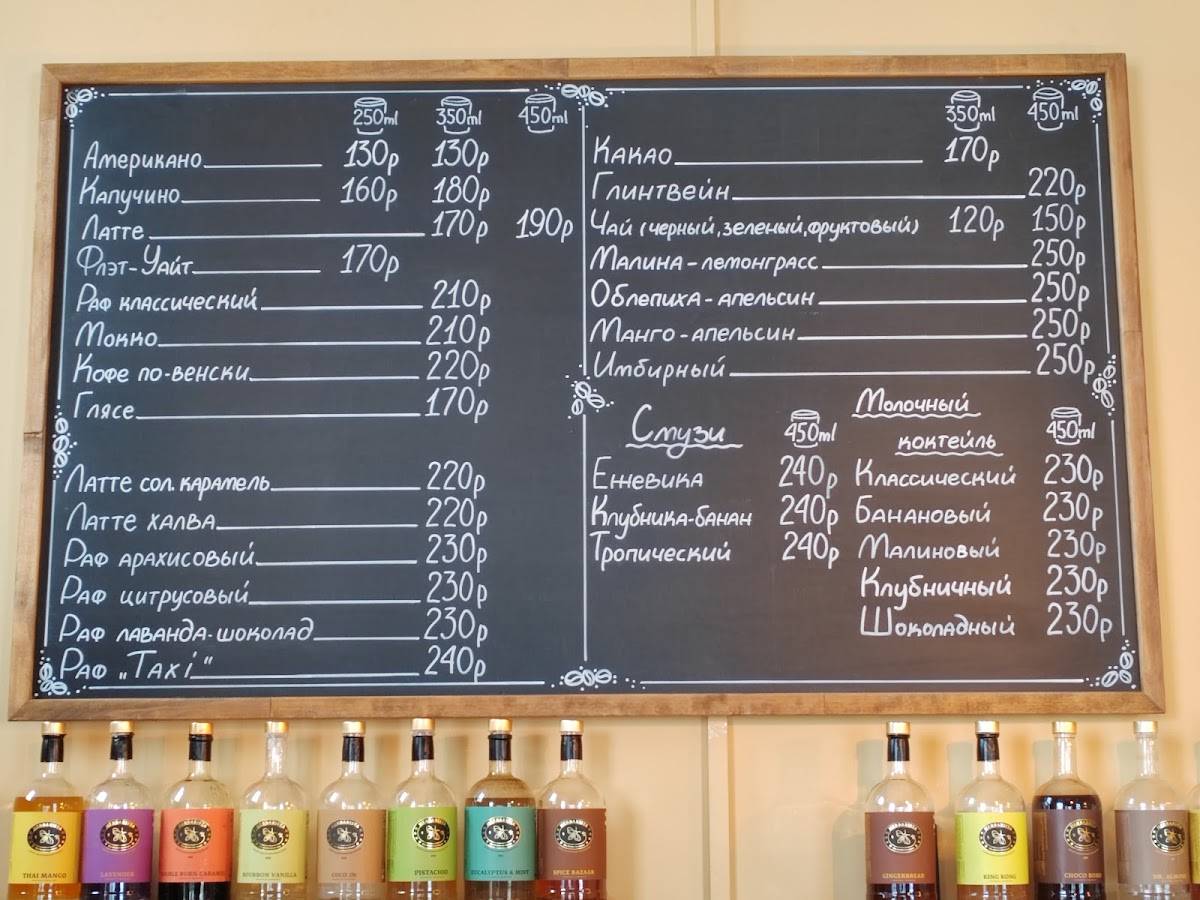 250ml 350ml 450ml
Американо 130р 130р
Капучино 160р 180р
Латте 170р 190р
Флэт-Уайт 170р
Раф классический 210р
Мокко 210р
Кофе по-венски 220р
Глясе 170р
Латте сол. карамель 220р
Латте халва 220р
Раф арахисовый 230р
Раф цитрусовый 230р
Раф лаванда-шоколад 230р
Раф „Taxi“ 240р
350ml 450ml
Какао 170р
Глинтвейн 220р
Чай (черный, зеленый, фруктовый) 120р 150р
Малина-лемонграсс 250р
Облепиха-апельсин 250р
Манго-апельсин 250р
Имбирный 250р
Смузи 450ml
Ежевика 240р
Клубника-банан 240р
Тропический 240р
Молочный
коктейль 450ml
Классический 230р
Банановый 230р
Малиновый 230р
Клубничный 230р
Шоколадный 230р
THAI MANGO
LAVENDER
BOURBON VANILLA
COCO IN
PISTACHIO
EUCALYPTUS & MINT
SPICE BAZAAR
GINGERBREAD
KING KONG
CHOCO
DR. ALMOND